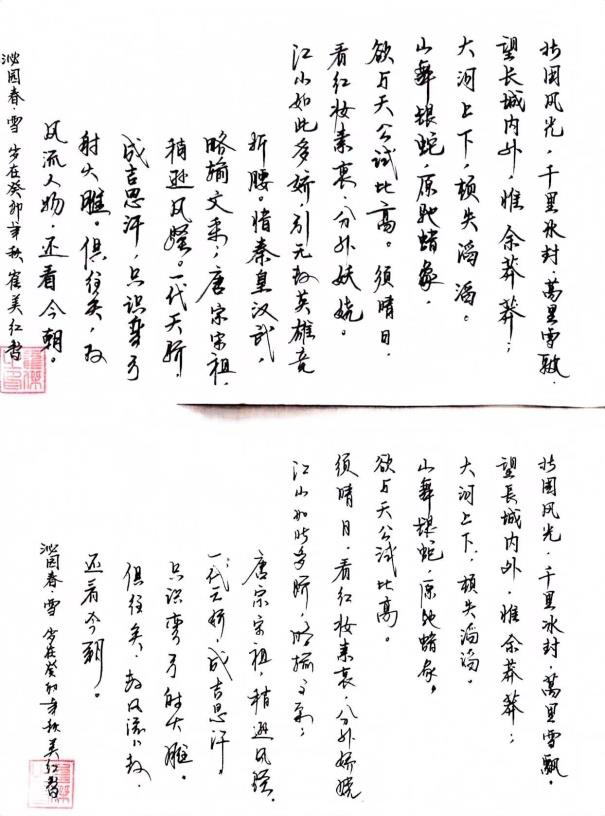 北国风光，千里冰封，萬里雪飘。
望长城内外，惟余莽莽；
大河上下，顿失滔滔。
山舞银蛇，原驰蜡象，
欲与天公试比高。须晴日，
看红妆素裹，分外妖娆。
江山如此多娇，引无数英雄竞
折腰。惜秦皇汉武，
略输文采，唐宗宋祖，
稍逊风骚。一代天骄，
成吉思汗，只识弯弓
射大雕。俱往矣，数
风流人物，还看今朝。
沁园春·雪 岁在癸卯年秋 崔美红书
北国风光，千里冰封，萬里雪飘。
望長城内外，惟余莽莽；
大河上下，顿失滔滔。
山舞银蛇，原驰蜡象。
欲与天公试比高。
须晴日，看红妆素裹，分外娇娆
江山如此多娇，略输文采；
唐宗宋祖，稍逊风骚。
一代天骄，成吉思汗。
只识弯弓射大雕。
俱往矣，数风流人数，
还看今朝。
沁园春·雪 岁在癸卯年秋 美红书